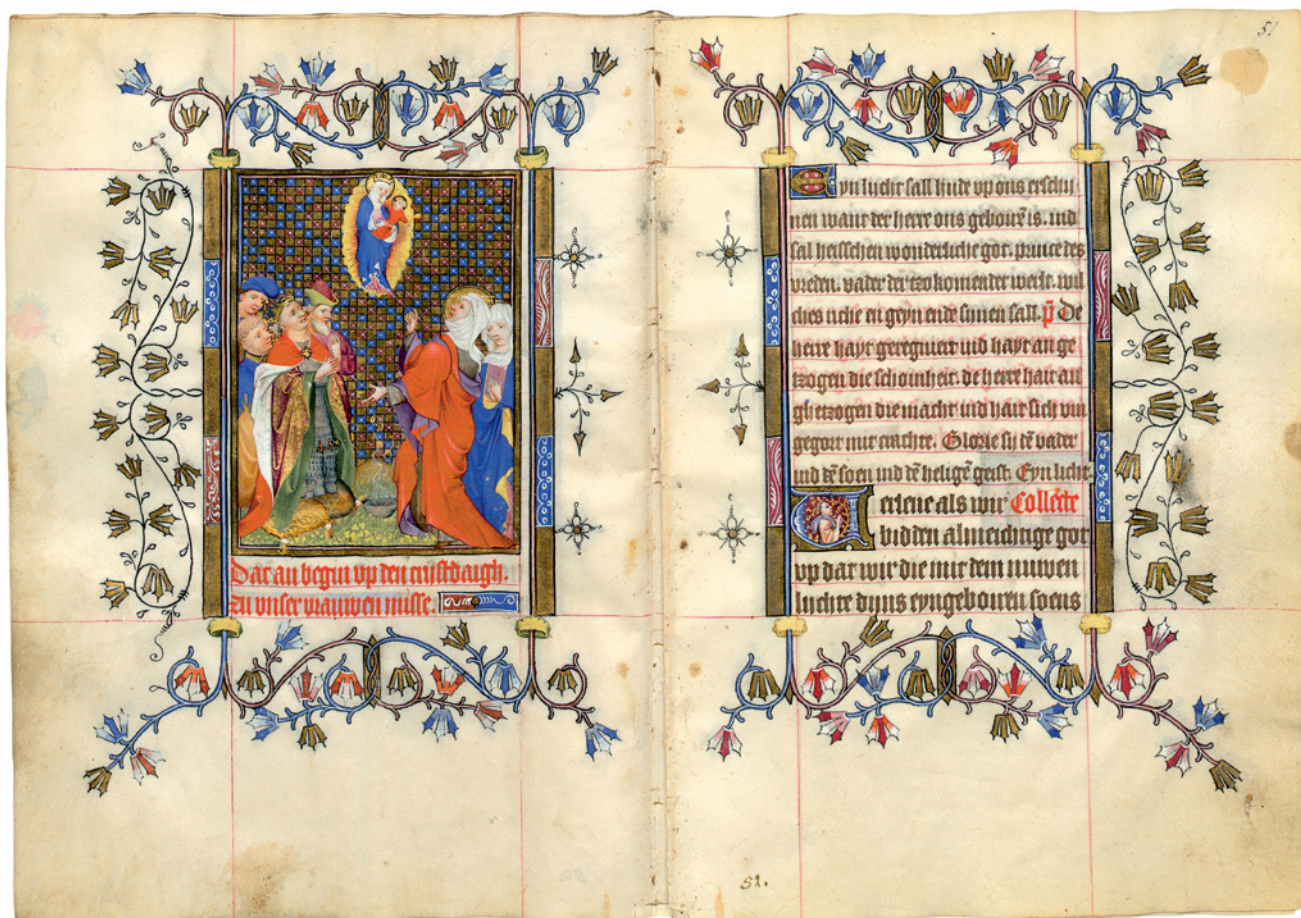 Dat an begin vp den cristdaigh.
zu vnser vrauwen misse.
51
Eyn lucht sall hude vp ons erschi
nen want der herre ons gebore̅ is. ind
sal heisschen wonderliche got. prince des
vreden. vader der tzo komender werlt. wil
ches riche en geyn ende sinen sall. p̅s De
herre hayt geregniert ind hayt an ge
tzogen die schoinheit. de herre hait an
ghetzogen die macht ind hait sich vm
gegort mit crachte. Glorie sij de̅ vader
ind de̅ soen ind de̅ helige̅ geist. Eyn licht.
erlene als wir Collecte
bidden almechtige got
vp dat wir die mit dem nuwen
luchte dyns eyngeboren soens
51.